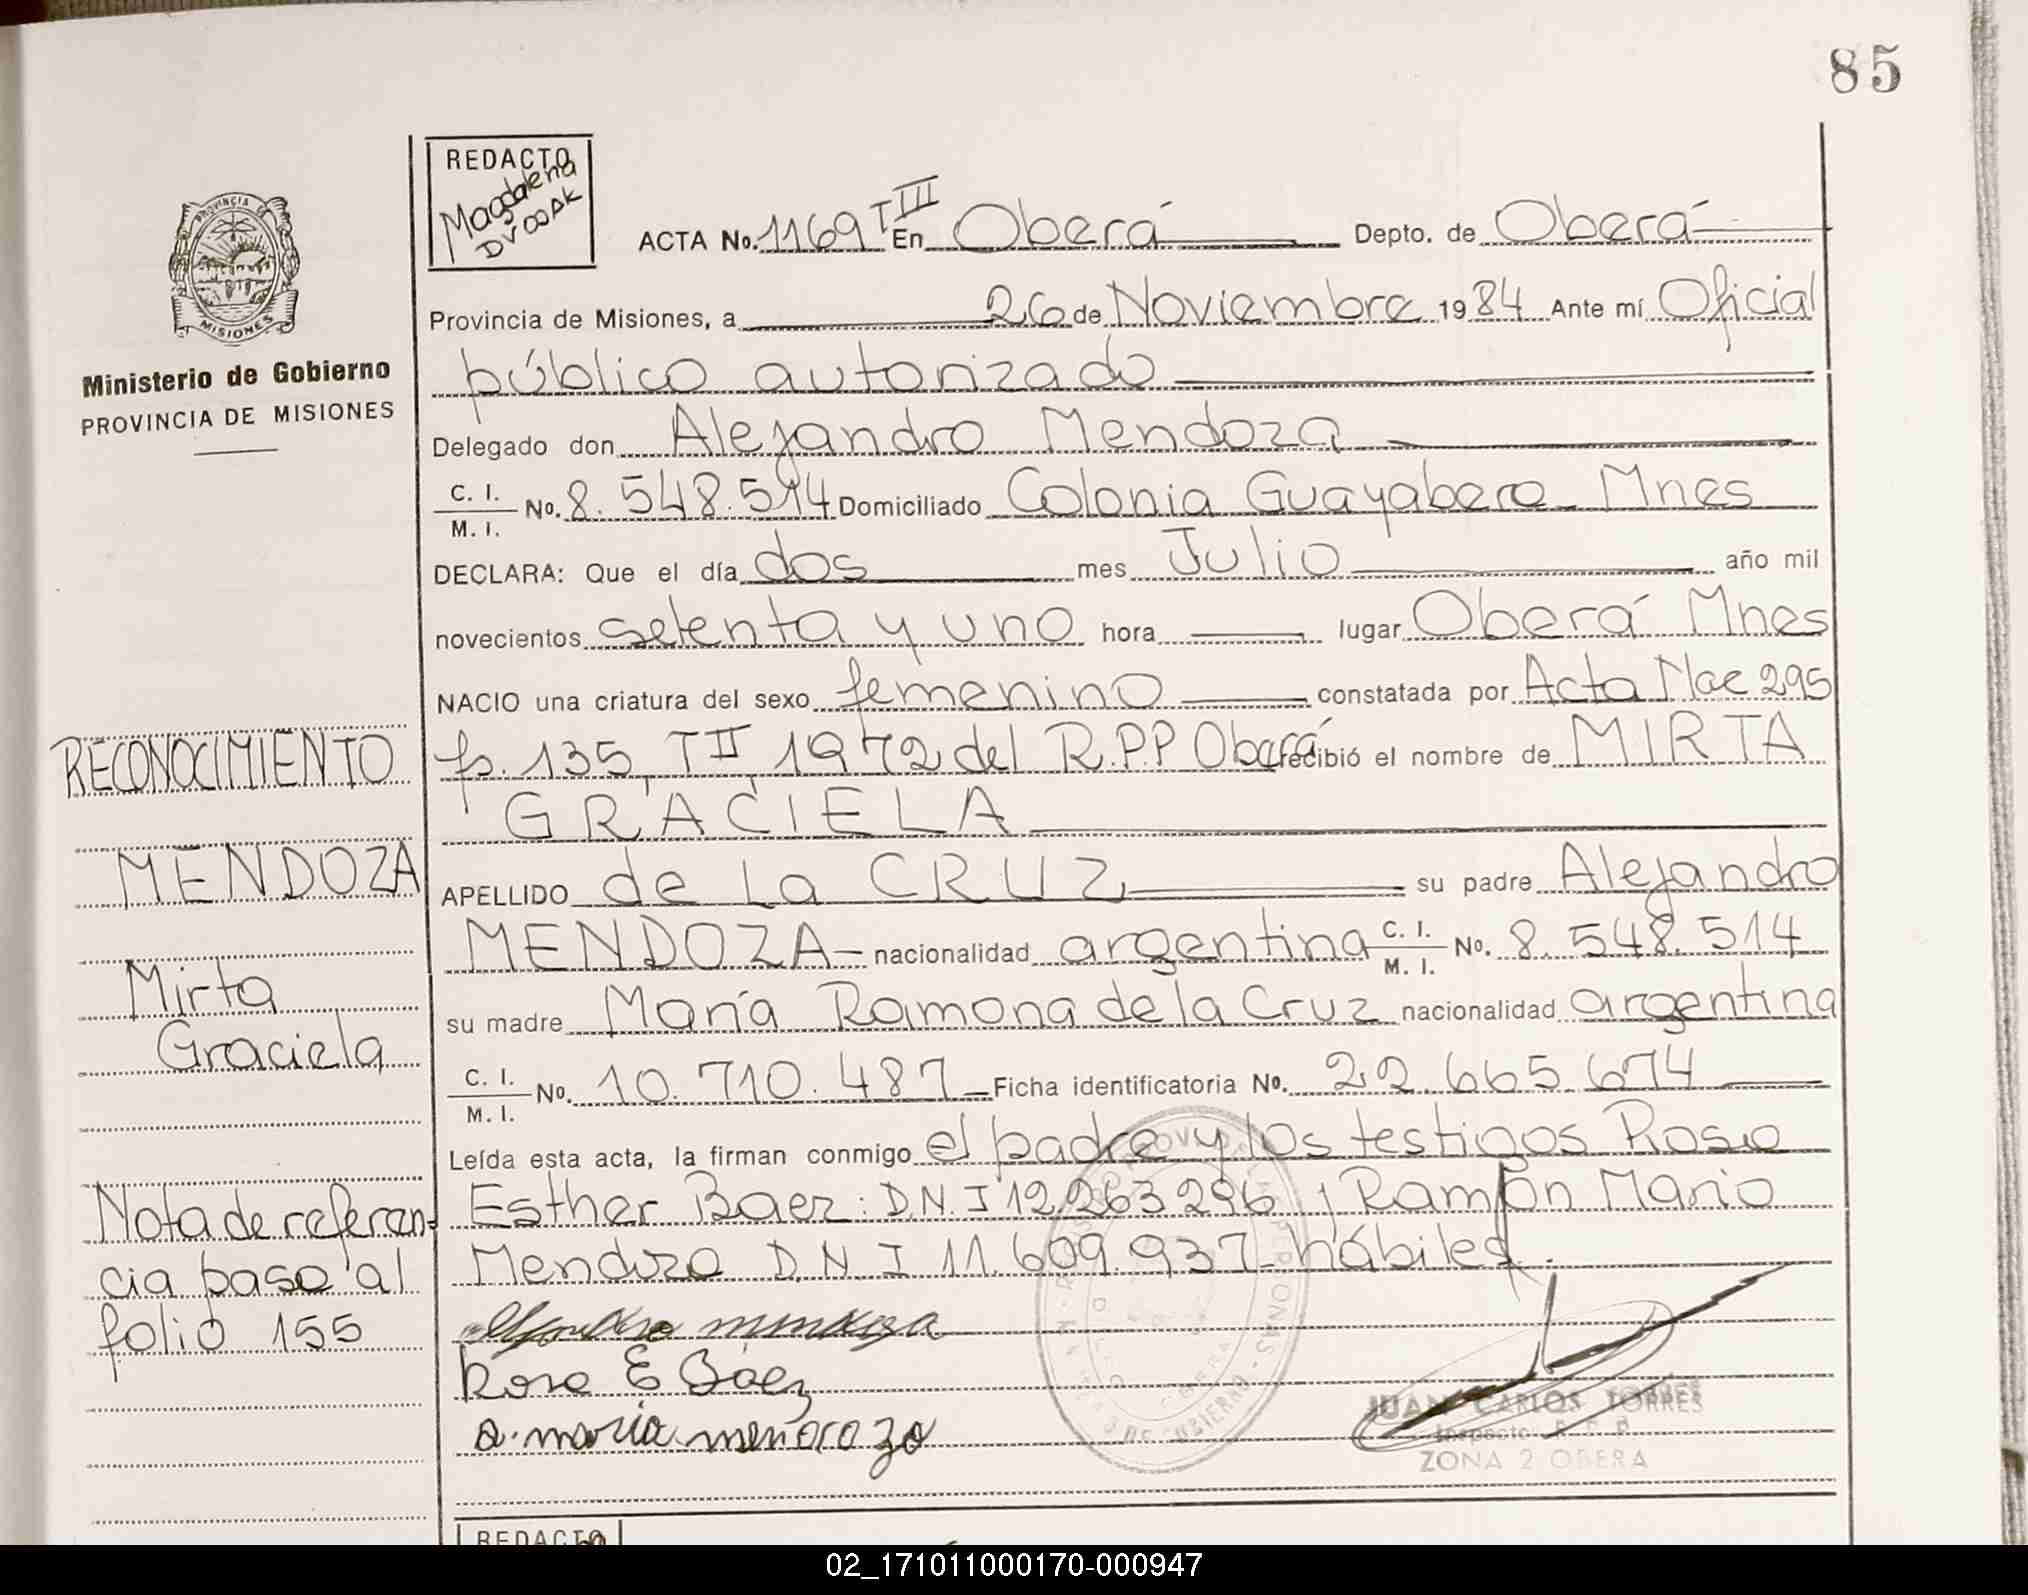 85
REDACTO
Magdalena
DVOOAK
ACTA No. 1169 T III En Oberá Depto. de Oberá
PROVINCIA DE
MISIONES
Ministerio de Gobierno
PROVINCIA DE MISIONES
Provincia de Misiones, a 26 de Noviembre 1984 Ante mí Oficial
público autorizado
Delegado don Alejandro Mendoza
C. I. / M. I. No. 8.548.514 Domiciliado Colonia Guayabera Mnes
DECLARA: Que el día dos mes Julio año mil
novecientos setenta y uno hora lugar Oberá Mnes
NACIO una criatura del sexo femenino constatada por Acta Nac 295
fo. 135, T II, 1972 del R.P.P Oberá recibió el nombre de MIRTA
GRACIELA
APELLIDO de la CRUZ su padre Alejandro
MENDOZA nacionalidad argentina C. I. / M. I. No. 8.548.514
su madre María Ramona de la Cruz nacionalidad argentina
C. I. / M. I. No. 10.710.487 Ficha identificatoria No. 22.665.674
Leída esta acta, la firman conmigo el padre y los testigos Rosa
Esther Baez: D.N.I 12.263.296, Ramón Mario
Mendoza D.N.I 11.609.937 hábiles.
mendoza
Rosa E Báez
JUAN CARLOS TORRES
Inspector
ZONA 2 OBERA
RECONOCIMIENTO
MENDOZA
Mirta
Graciela
Nota de referen-
cia pase al
folio 155
REDACTO
02_171011000170-000947